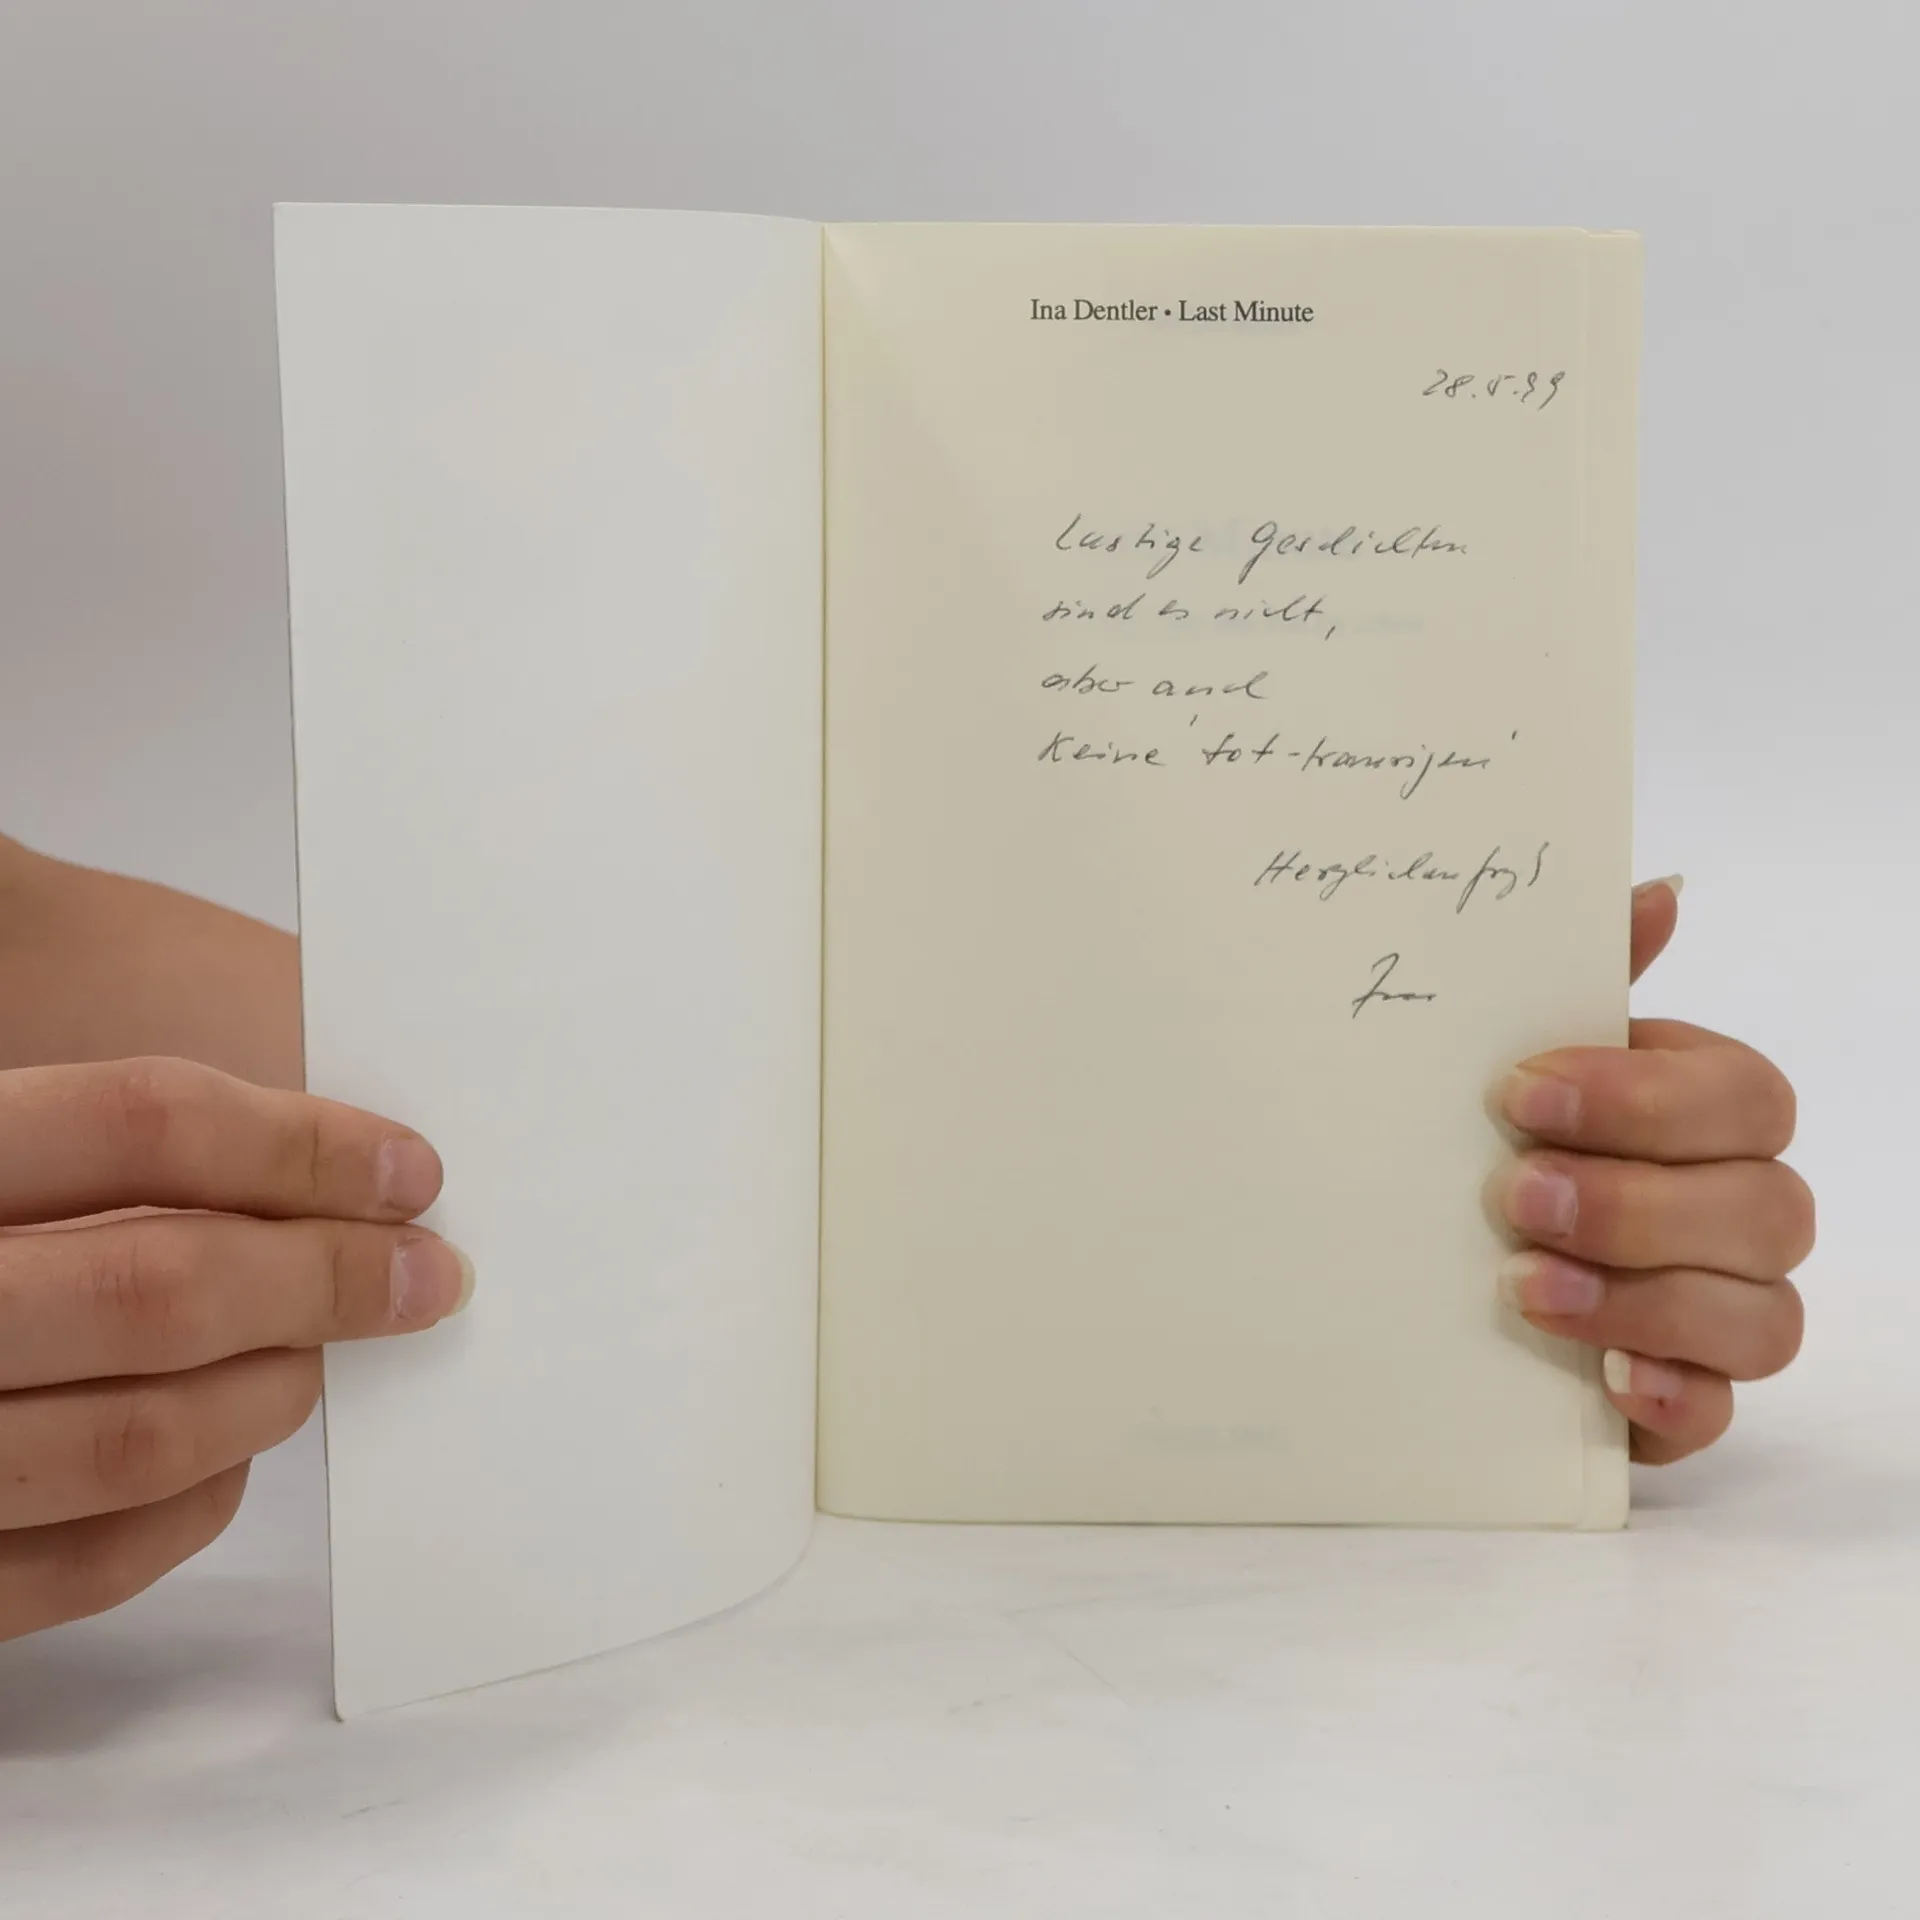 Ina Dentler • Last Minute
28.5.99
Lustige Geschichten
sind es nicht,
aber auch
keine 'tot-traurigen'
Herzlichen
Ina